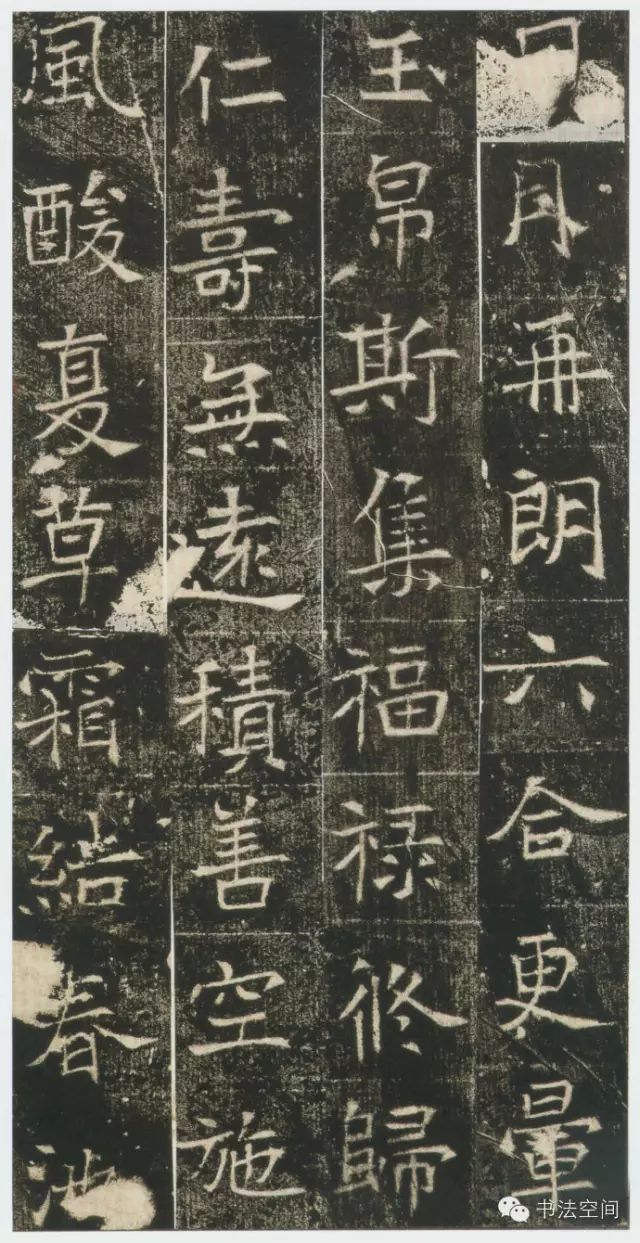 日月再朗六合更暈
玉帛斯集福禄修歸
仁壽無遠積善空施
風酸夏草霜結春池
书法空间